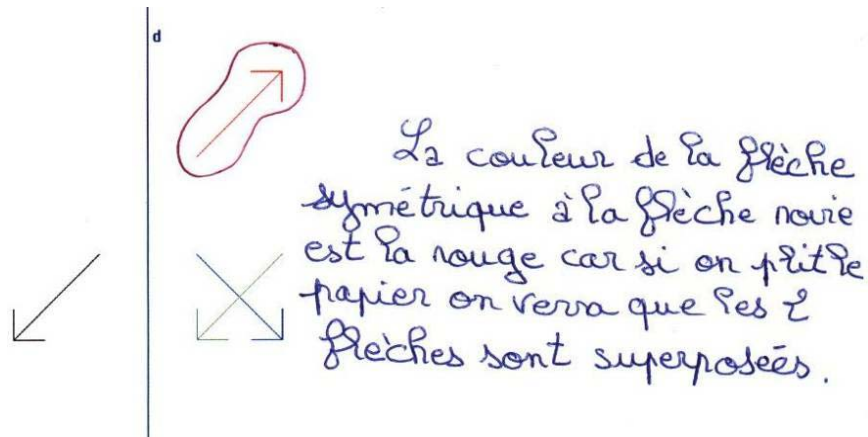 d
La couleur de la flèche
symétrique à la flèche noire
est la rouge car si on plit le
papier on verra que les 2
flèches sont superposées.